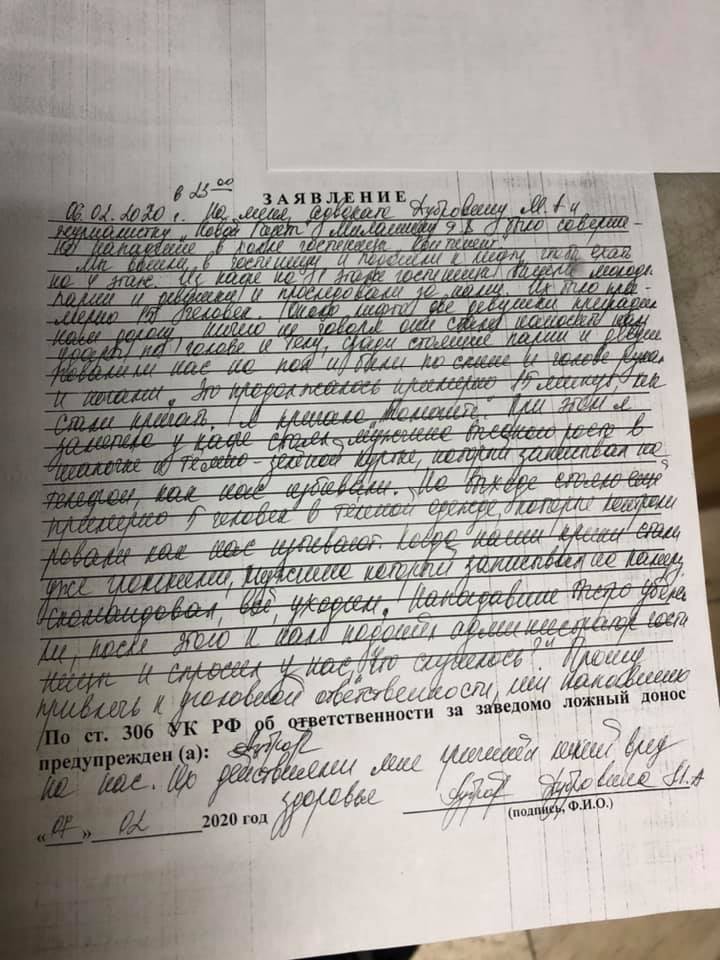 в 23 00
ЗАЯВЛЕНИЕ
06.02.2020 г. На меня, адвоката Дубровину М.А и
журналистку "Новой Газеты" Милашину Е.В было соверше-
но нападение в холле гостиницы "Континент".
Мы вошли в гостиницу и подошли к лифту, чтобы ехать
на 4 этаж. Из кафе на 1 этаже гостиницы вышли молодые
парни и девушки и проследовали за нами. Их было при-
мерно 15 человек. Около лифта две девушки преградили
нам дорогу, ничего не говоря они стали наносить нам
удары по голове и телу, сзади стоящие парни и девушки
повалили нас на пол и били по спине и голове руками
и ногами. Это продолжалось примерно минут, мы
стали кричать. Я кричала "Помогите". При этом я
заметила у кафе стоял мужчина высокого роста в
шапочке и темно-зелёной куртке, который записывал на
телефон, как нас избивали. На выходе стояло ещё
примерно 5 человек в темной одежде, которые контроли
ровали как нас избивают. Когда наши крики стали
уже громкими, мужчина который записывал на камеру,
скомандовал, всё, уходим. Нападавшие быстро убежа
ли, после этого к нам подошёл администратор гости
ницы и спросил у нас, "Что случилось?" Прошу
привлечь к уголовной ответственности, лиц напавших
По ст. 306 УК РФ об ответственности за заведомо ложный донос
предупрежден (а):
на нас. Их действиями мне причинён вред
здоровью
Дубровина М.А
(подпись, Ф.И.О.)
«07» 02 2020 год